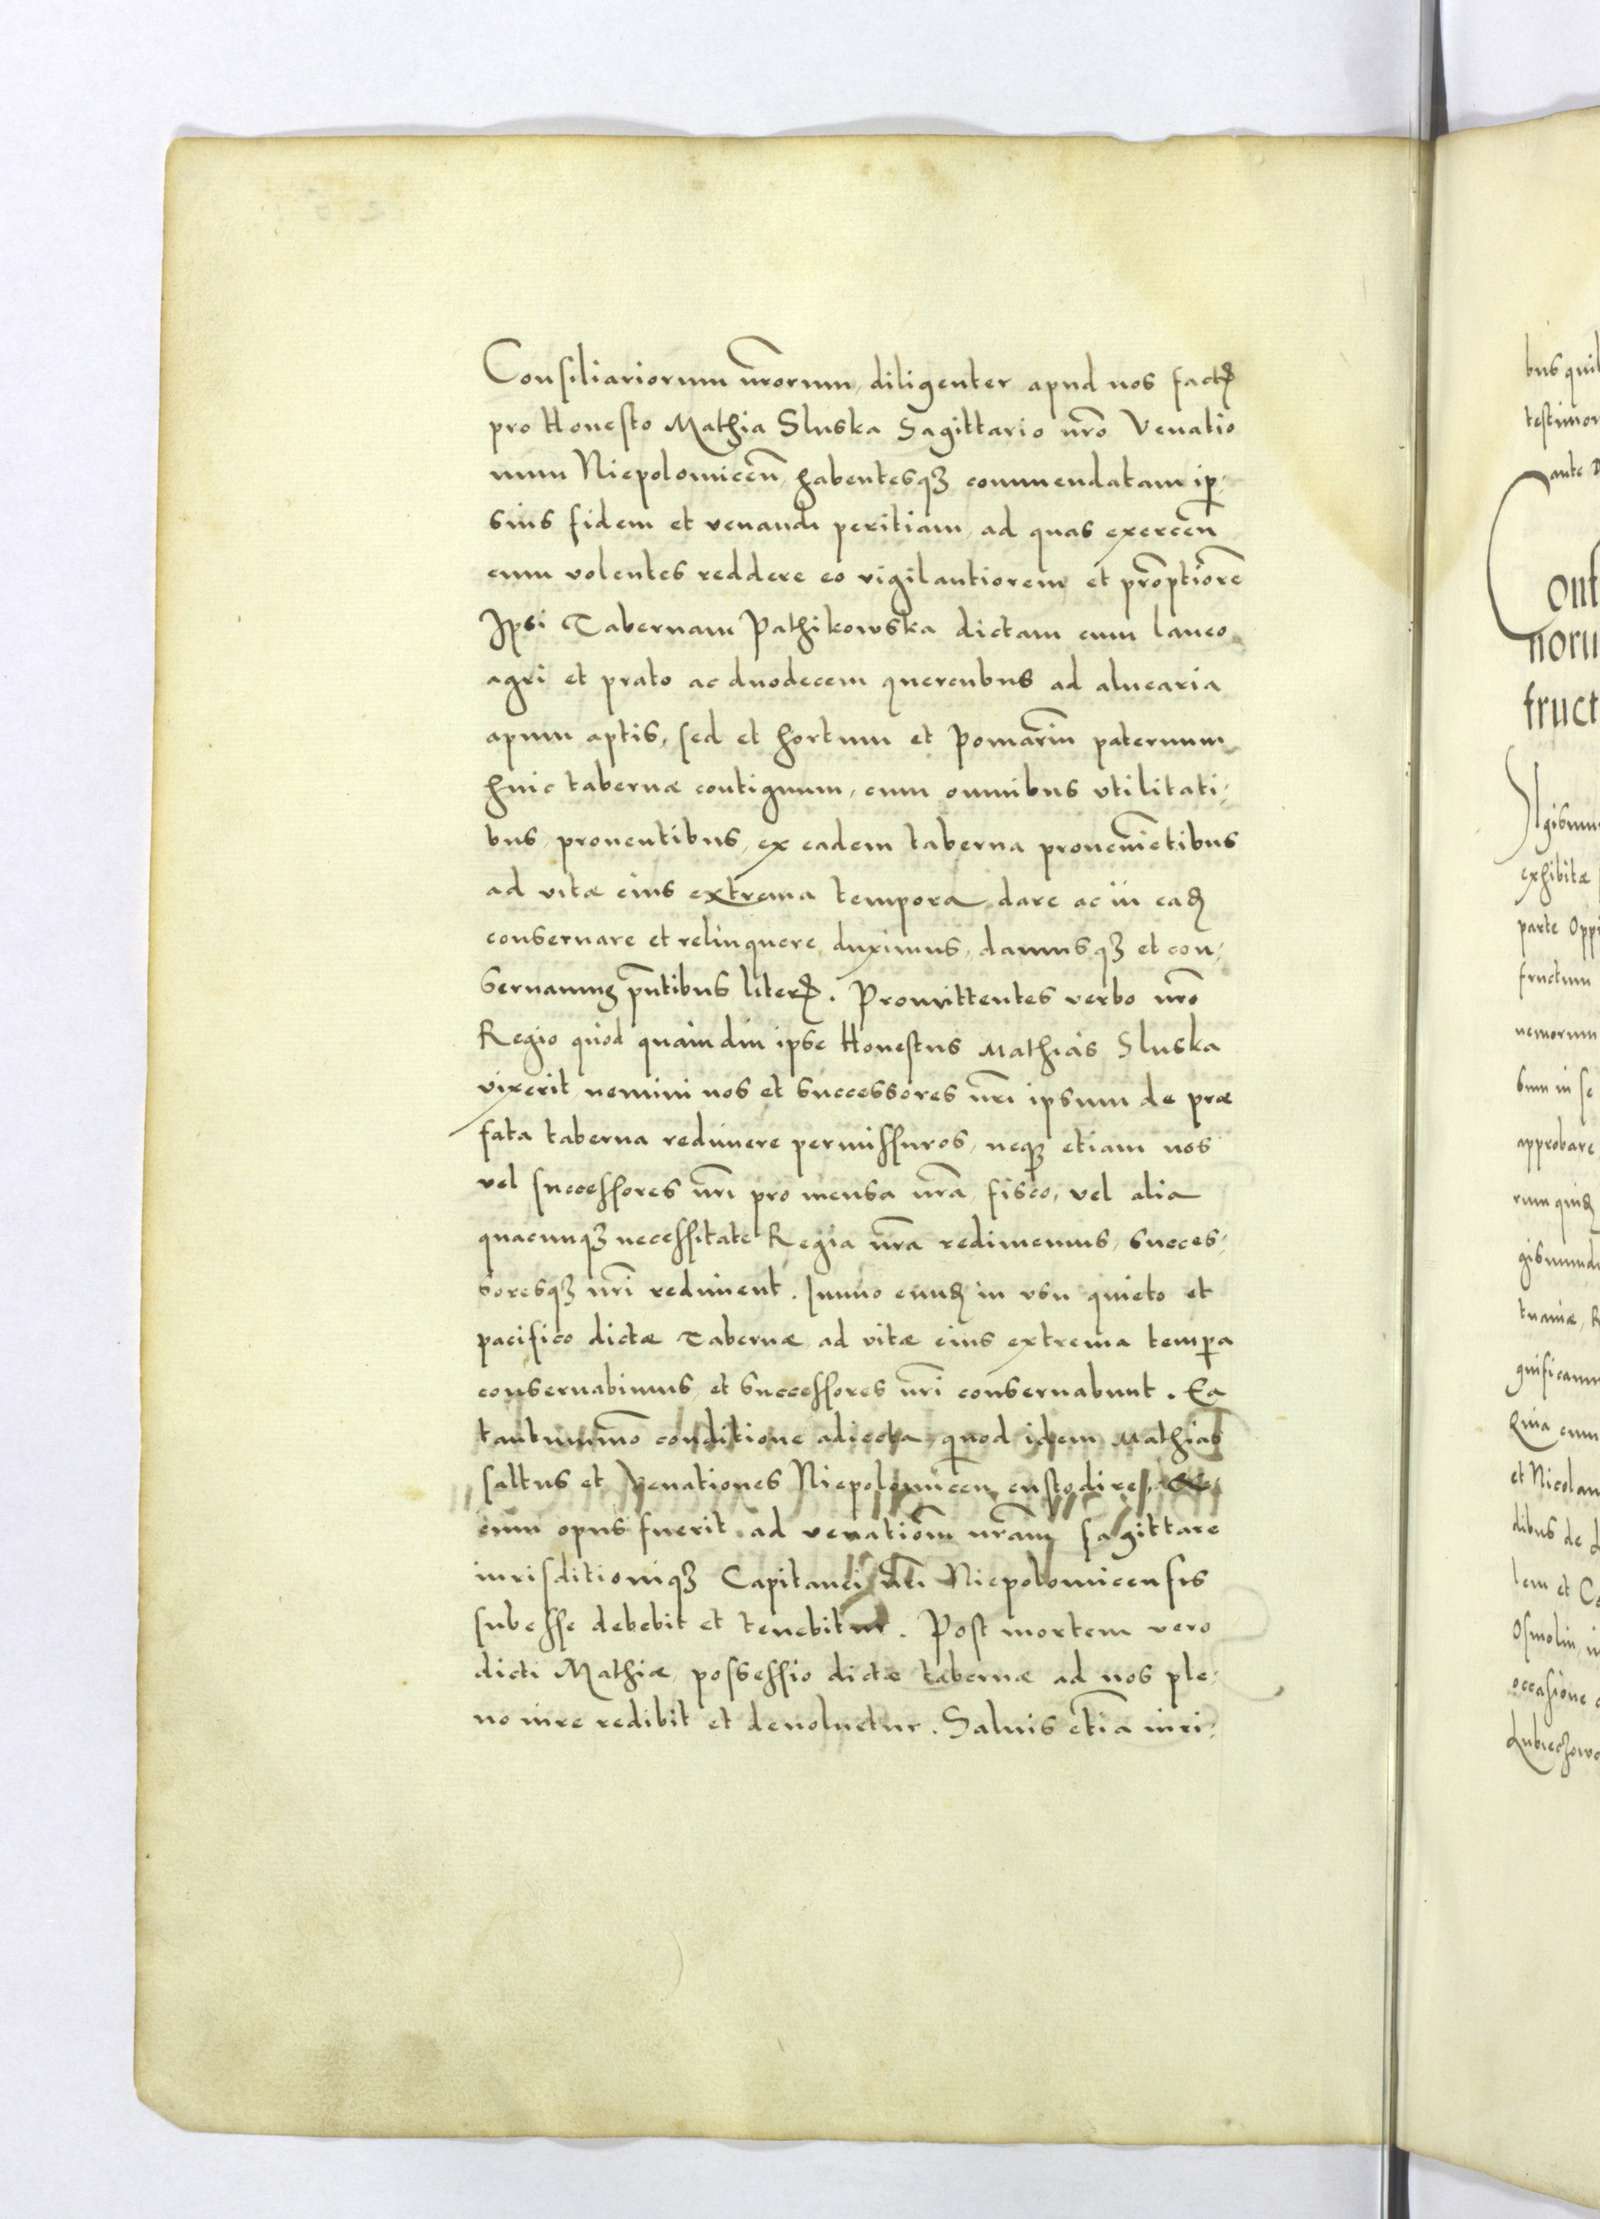 Consiliariorum nr̃orum, diligenter apud nos fact
pro Honesto Mathia Sluska Sagittario nr̃o Venatio
num Niepolomiceñ, habentesqꝫ commendatam ip,
sius fidem et venandi peritiam, ad quas exerceñ
eum volentes reddere eo vigilantiorem et prõptiorẽ
Ipsi Tabernam Pathikowska dictam cum laneo
agri et prato ac duodecem quercubus ad aluearia
apum aptis, sed et hortum et Pomariũ paternum
huic tabernæ contiguum, cum omnibus vtilitati,
bus, prouentibus, ex eadem taberna proueniẽtibus
ad vitæ eius extrema tempora dare ac in ead
conseruare et relinquere duximus, damusqꝫ et con,
seruamus pñtibus liter. Promittentes verbo nr̃o
Regio quod quam diu ipse Honestus Mathias Sluska
vixerit, nemini nos et successores nr̃i ipsum de præ
fata taberna redimere permissuros, neqꝫ etiam nos
vel successores nr̃i pro mensa nr̃a, fisco, vel alia
quacunqꝫ necessitate Regia nr̃a redimemus, succes,
soresqꝫ nr̃i rediment. Immo eund in vsu quieto et
pacifico dictæ Tabernæ ad vitæ eius extrema temp̃a
conseruabimus, et successores nr̃i conseruabunt. Ea
tantummõ conditione adiecta, quod idem Mathias
saltus et Venationes Niepolomiceñ custodire, &
cum opus fuerit ad venatiõm nr̃am sagittare
iurisditioniqꝫ Capitanei nr̃i Niepolomicensis
subesse debebit et tenebitur. Post mortem vero
dicti Mathiæ, possessio dictæ tabernæ ad nos ple,
no iure redibit et deuoluetur. Saluis etiã iuri,
bus
testimon
ante
Conf
noru
fruct
exhibitæ
parte Oppi
fructum
nemorum
sum in se
approbare
rum quid
gismund
tuaniæ, R
gnificam
Quia cum
et Nicolau
dibus de
lem et Ca
Osmolin, i
occasione
Lubiechowo